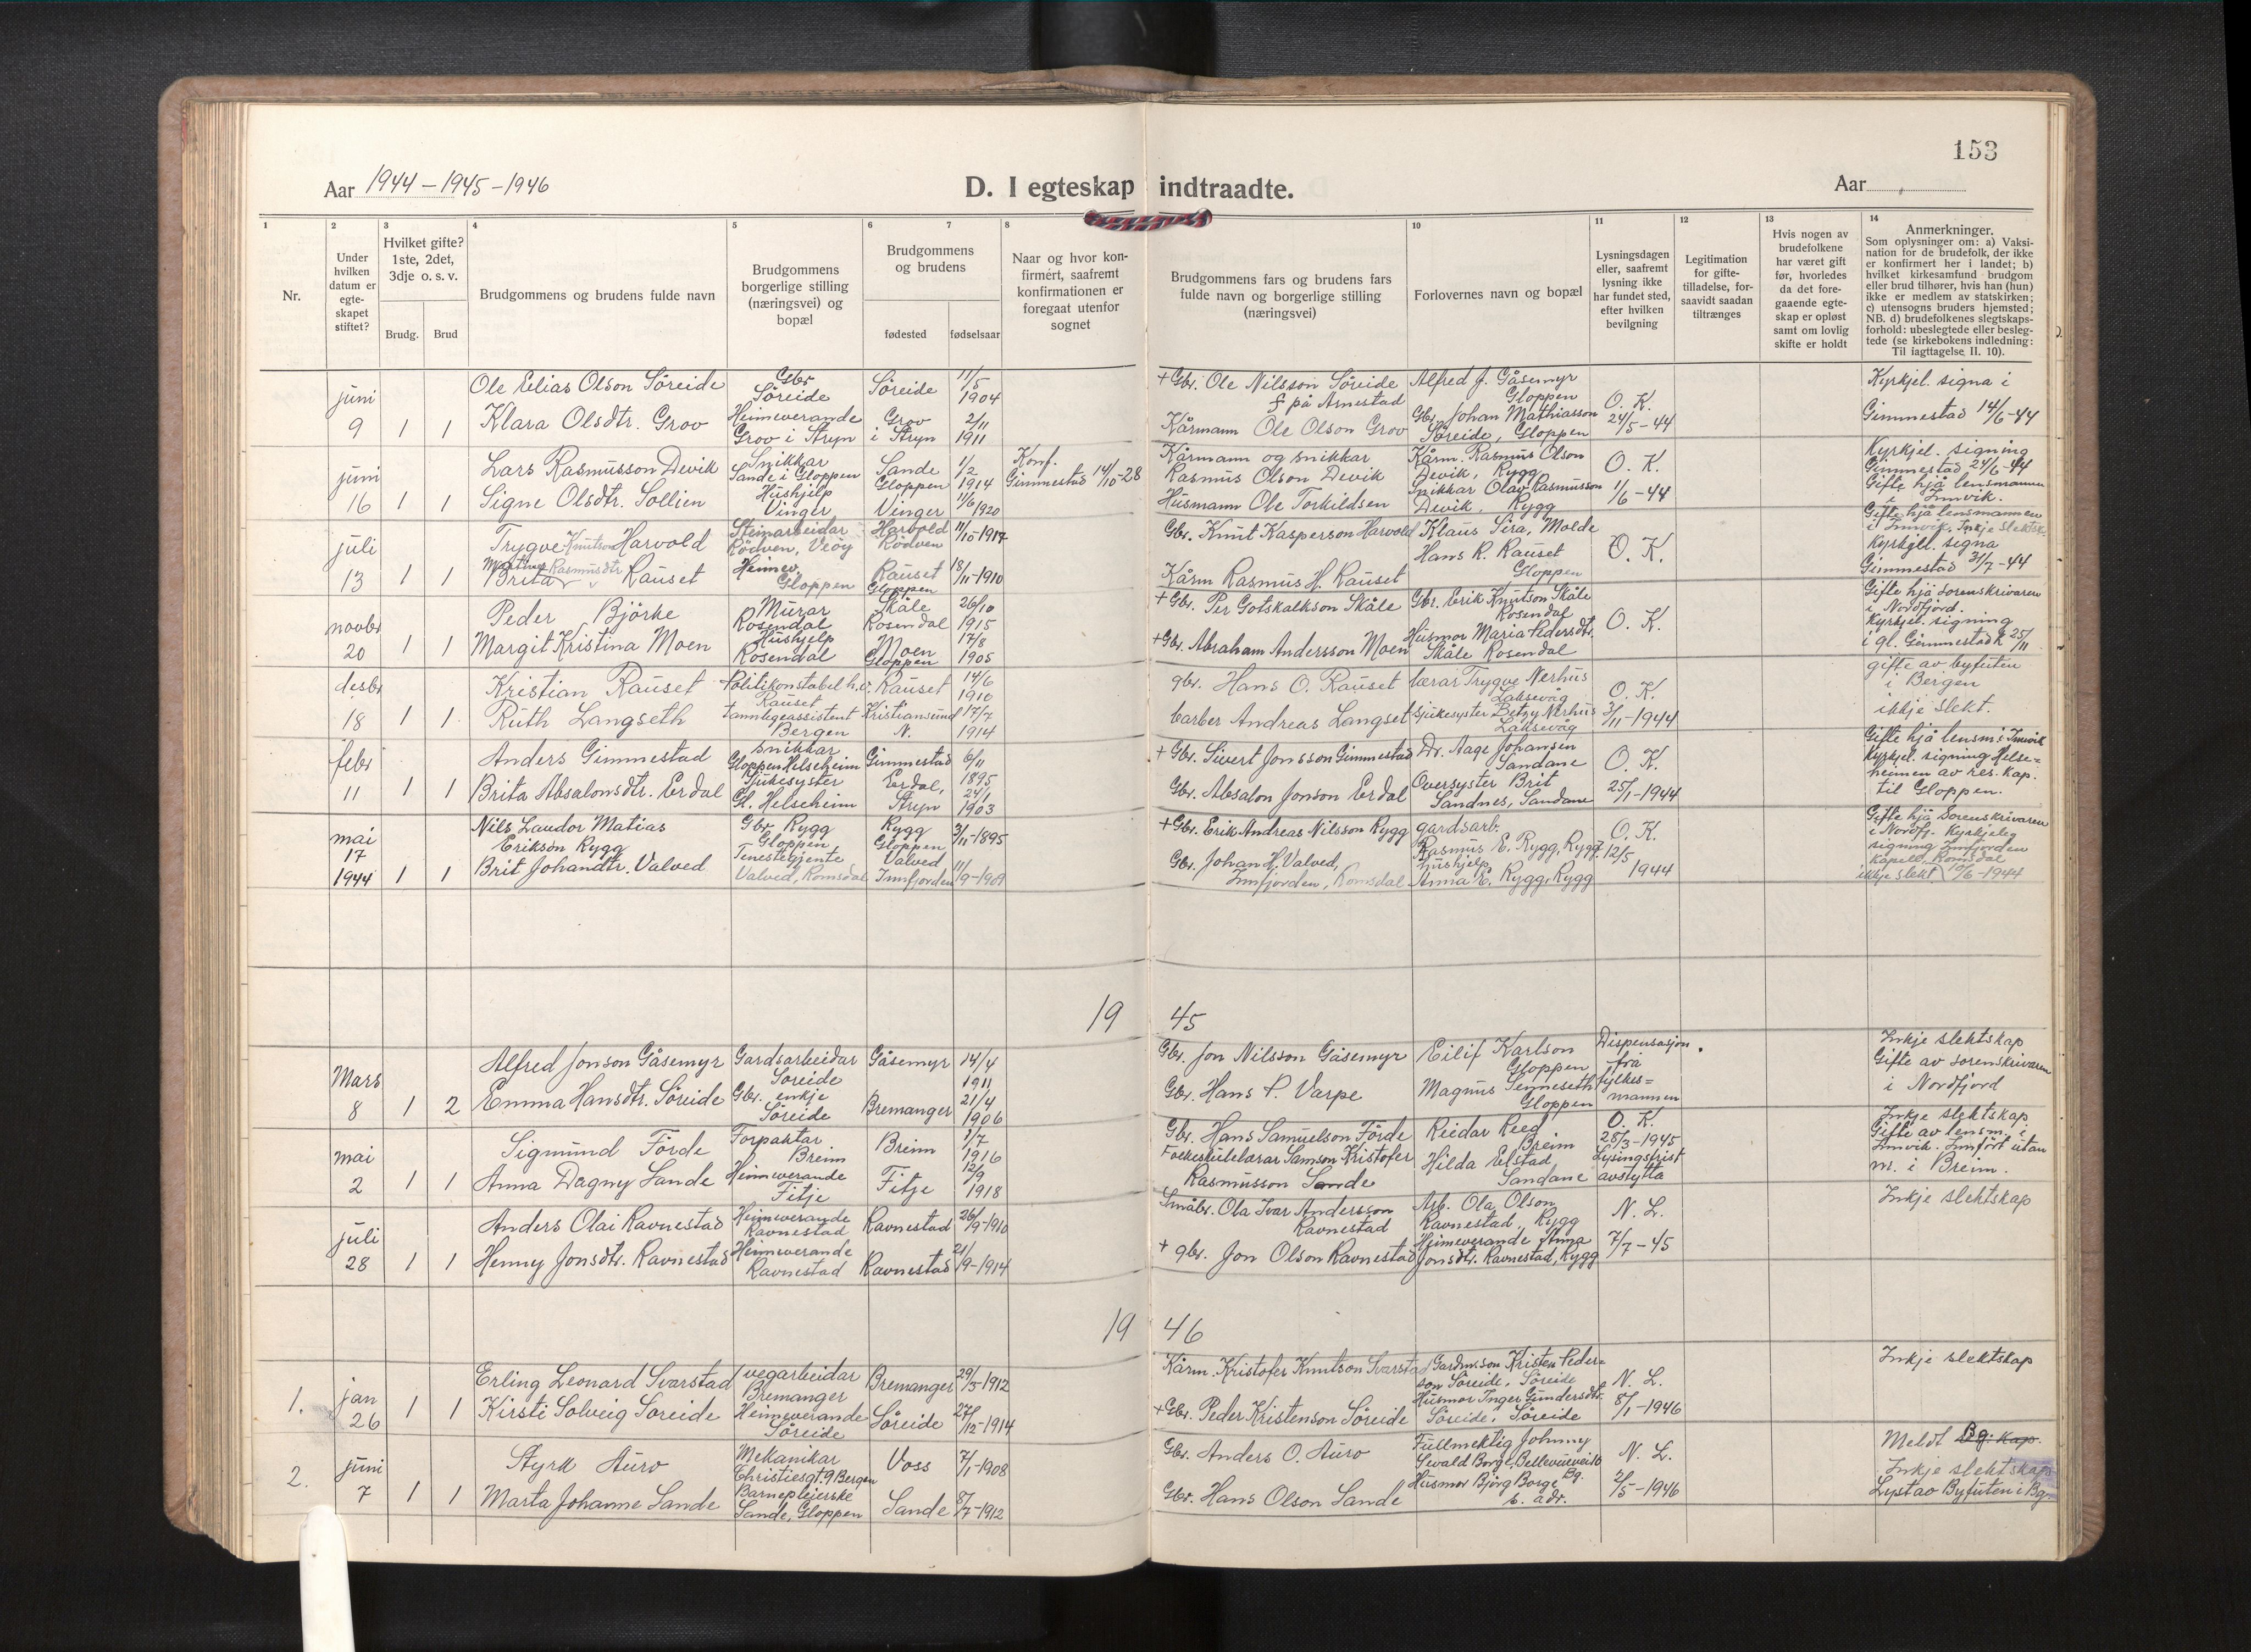 153
Aar 1944 - 1945 - 1946
D. I egteskap indtraadte.
Aar
1
2
3
4
5
6
7
8
10
11
12
13
14
Nr.
Under hvilken datum er egte- skapet stiftet?
Hvilket gifte? 1ste, 2det, 3dje o. s. v.
Brudg.
Brud
Brudgommens og brudens fulde navn
Brudgommens borgerlige stilling (næringsvei) og bopæl
Brudgommens og brudens
fødested
fødselsaar
Naar og hvor kon- firmert, saafremt konfirmationen er foregaat utenfor sognet
Brudgommens fars og brudens fars fulde navn og borgerlige stilling (næringsvei)
Forlovernes navn og bopæl
Lysningsdagen eller, saafremt lysning ikke har fundet sted, efter hvilken bevilgning
Legitimation for gifte- tilladelse, for- saavidt saadan tiltrænges
Hvis nogen av brudefolkene har været gift før, hvorledes da det fore- gaaende egte- skap er opløst samt om lovlig skifte er holdt
Anmerkninger.
Som oplysninger om: a) Vaksi- nation for de brudefolk, der ikke er konfirmert her i landet; b) hvilket kirkesamfund brudgom eller brud tilhører, hvis han (hun) ikke er medlem av statskirken; c) utensogns bruders hjemsted; NB. d) brudefolkenes slegtskaps- forhold: ubeslegtede eller besleg- tede (se kirkebokens indledning: Til iagttagelse II. 10).
juni 9 1 1
Ole Elias Olson Söreide
Gbr Söreide
Söreide
11/5 1904
+ Gbr. Ole Nilsson Söreide f på Arnestad
Alfred J. Gåsemyr Gloppen
O. K. 24/5 - 44
Kyrkjel. signa i Gimmestad 14/6-44
Klara Olsdtr. Grov
Heimeverande Grov i Stryn
Grov i Stryn
2/11 1911
Kårmann Ole Olson Grov
Gbr. Johan Mathiasson Söreide, Gloppen
juni 16 1 1
Lars Rasmusson Devik
Snikkar Sande i Gloppen
Sande Gloppen
1/2 1914
Konf. Gimmestad 14/10-28
Kårmann og snikkar Rasmus Olson Devik
Kårm. Rasmus Olson Devik, Rygg
O. K. 1/6 - 44
Kyrkjel. signing Gimmestad 24/6-44 Gifte hjå lensmannen i Innvik.
Signe Olsdtr. Sollien
Hushjelp Vinger
Vinger
11/6 1920
Husmann Ole Torkildsen
Snikkar Olav Rasmusson Devik, Rygg
juli 13 1 1
Trygve Knutson Harvold
Steinarbeidar Rödven, Veöy
Harvold Rödven
11/10-1917
Gbr. Knut Kasperson Harvold
Klaus Sira, Molde
O. K.
Gifte hjå lensmannen i Innvik. Inkje slektsk. Kyrkjel. signa Gimmestad 31/7-44
Marthe Brita Rasmusdtr Rauset
Heimev. Gloppen
Rauset Gloppen
18/11-1910
Kårm Rasmus H. Rauset
Hans R. Rauset Gloppen
novbr 20 1 1
Peder Björke
Murar Rosendal
Skåle Rosendal
26/10 1915
+ Gbr. Per Gotskalkson Skåle
Gbr. Erik Knutson Skåle Rosendal
O. K.
Gifte hjå sorenskrivaren i Nordfjord. Kyrkjel. signing i gl. Gimmestad k 25/11
Margit Kristina Moen
Hushjelp Rosendal
Moen Gloppen
17/8 1905
+ Gbr. Abraham Andersson Moen
Husmor Maria Pedersdtr. Skåle Rosendal
desbr 18 1 1
Kristian Rauset
Politikonstabel h.v. Rauset
Rauset
14/6 1910
gbr. Hans O. Rauset
lærar Trygve Nerhus Laksevåg
O. K. 3/11-1944
gifte av byfuten i Bergen ikkje slekt.
Ruth Langseth
tannlegeassistent Bergen
Kristiansund N.
17/7 1914
barber Andreas Langset
sjukesyster Betzy Nerhus Laksevåg
febr 11 1 1
Anders Gimmestad
snikkar Gloppen Helseheim
Gimmestad
6/11 1895
+ Gbr. Sivert Jonsson Gimmestad
Dr. Aage Johansen Sandane
O. K. 25/1-1944
Gifte hjå lensm. i Innvik Kyrkjel. signing Helse= heimen av res. kap. til Gloppen.
Brita Absalonsdtr. Erdal
Sjukesyster Gl. Helseheim
Erdal, Stryn
24/1 1903
Gbr. Absalon Jonson Erdal
Oversyster Brit Sandnes, Sandane
mai 17 1944 1 1
Nils Landor Matias Erikson Rygg
Gbr. Rygg Gloppen
Rygg Gloppen
3/11-1895
+ Gbr. Erik Andreas Nilsson Rygg
gardsarb. Rasmus E. Rygg, Rygg
O. K. 12/5 1944
Gifte hjå Sorenskrivaren i Nordfj. Kyrkjeleg signing Innfjorden kapell, Romsdal ikkje slekt 10/6-1944
Brit Johandtr. Valved
Tenestegjente Valved, Romsdal
Valved Innfjorden
11/9-1909
Gbr. Johan H. Valved, Innfjorden, Romsdal
Hushjelp Anna E. Rygg, Rygg
19 45
Mars 8 1 2
Alfred Jonson Gåsemyr
Gardsarbeidar Söreide
Gåsemyr
14/4 1911
Gbr. Jon Nilsson Gåsemyr
Eilif Karlson Gloppen
Dispensasjon frå fylkes= mannen
Inkje slektskap Gifte av sorenskrivaren i Nordfjord
Emma Hansdtr. Söreide
Gbr. enkje Söreide
Bremanger
21/4 1906
Gbr. Hans P. Varpe
Magnus Senneseth Gloppen
mai 2 1 1
Sigmund Förde
Forpaktar Breim
Breim
1/7 1916
Gbr. Hans Samuelson Förde
Reidar Reed Breim
O. K. 28/3-1945 Lysingsfrist avstytta
Inkje slektskap Gifte av lensm. i Innvik. Innfört utan nr. i Breim.
Anna Dagny Sande
Heimeverande Fitje
Fitje
12/9 1918
Folkeskulelærar Samson Kristofer Rasmusson Sande
Hilda Elstad Sandane
juli 28 1 1
Anders Olai Ravnestad
Heimeverande Ravnestad
Ravnestad
26/9-1910
Småbr. Ola Ivar Andersson Ravnestad
Arb. Ola Olson Ravnestad, Rygg
N. L. 7/7-45
Inkje slektskap
Henny Jonsdtr. Ravnestad
Heimeverande Ravnestad
Ravnestad
21/9-1914
+ gbr. Jon Olson Ravnestad
Heimeverande Anna Jonsdtr. Ravnestad, Rygg
19 46
1. jan 26 1 1
Erling Leonard Svarstad
vegarbeidar Bremanger
Bremanger
29/5-1912
Kårm. Kristofer Knutson Svarstad
Gardm.son Kristen Peder= son Söreide, Söreide
N. L. 8/1-1946
Inkje slektskap
Kirsti Solveig Soreide
Heimeverande Söreide
Söreide
27/12-1914
+ Gbr. Peder Kristenson Söreide
Husmor Inger Gundersdtr. Söreide, Söreide
2. juni 7 1 1
Styrk Auro
Mekanikar Christiesgt. 9 Bergen
Voss
7/1-1908
Gbr. Anders O. Auro
Fullmektig Johnny Sewald Borge, Bellevueveien Bg.
N. L. 2/5-1946
Meldt Bg. kap. Inkje slektskap Lystav Byfuten i Bg.
Marta Johanne Sande
Barnepleierske Sande, Gloppen
Sande
8/7-1912
Gbr. Hans Olson Sande
Husmor Björg Borge s. adr.